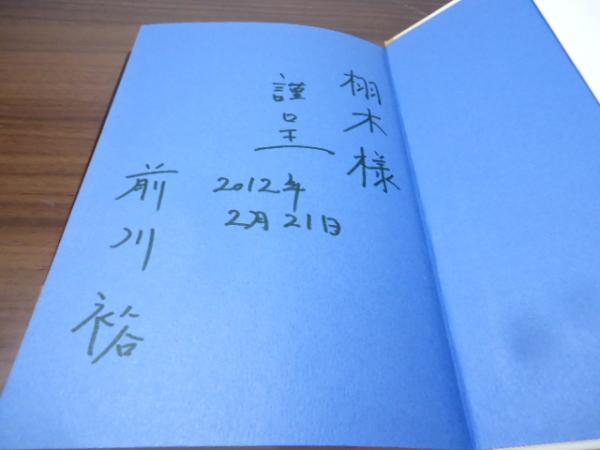 栩木様
謹呈
2012年
2月21日
前川裕